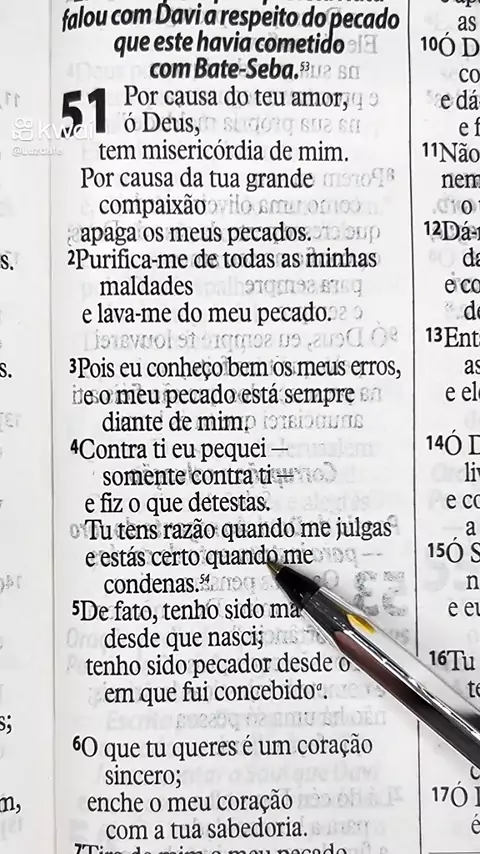 falou com Davi a respeito do pecado
que este havia cometido
com Bate-Seba.⁵³
51 Por causa do teu amor,
ó Deus,
tem misericórdia de mim.
Por causa da tua grande
compaixão
apaga os meus pecados.
2Purifica-me de todas as minhas
maldades
e lava-me do meu pecado.
3Pois eu conheço bem os meus erros,
e o meu pecado está sempre
diante de mim.
4Contra ti eu pequei —
somente contra ti —
e fiz o que detestas.
Tu tens razão quando me julgas
e estás certo quando me
condenas.⁵⁴
5De fato, tenho sido
desde que nasci;
tenho sido pecador desde o
em que fui concebidoᵃ.
6O que tu queres é um coração
sincero;
enche o meu coração
com a tua sabedoria.
7Tira de mim o meu pecado
kwai
s.
s.
s;
m,
as
10Ó D
co
e dá
e f
11Não
nem
o t
12Dá-
da
e co
de
13Ent
as
e el
14Ó D
liv
e co
a
15Ó S
n
e eu
16Tu
te
17Ó
é